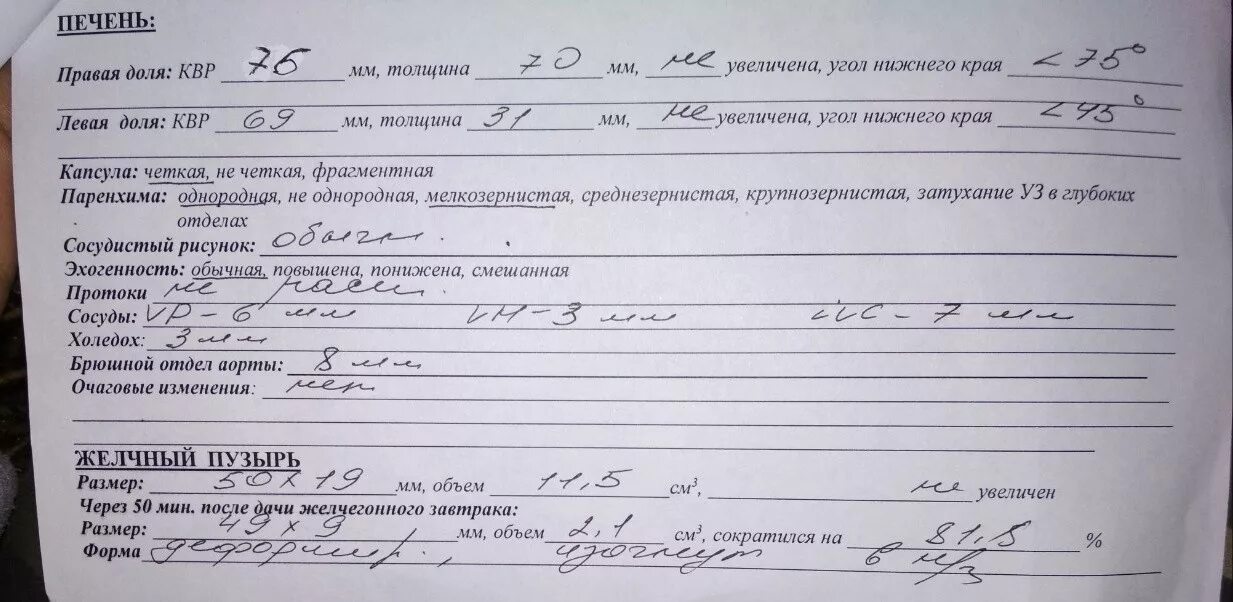 ПЕЧЕНЬ:
Правая доля: КВР 76 мм, толщина 70 мм, не увеличена, угол нижнего края < 75°
Левая доля: КВР 69 мм, толщина 31 мм, не увеличена, угол нижнего края < 45°
Капсула: четкая, не четкая, фрагментная
Паренхима: однородная, не однородная, мелкозернистая, среднезернистая, крупнозернистая, затухание УЗ в глубоких
отделах
Сосудистый рисунок: обычн.
Эхогенность: обычная, повышена, понижена, смешанная
Протоки не расш.
Сосуды: VP - 6 мм VH - 3 мм IVC - 7 мм
Холедох: 3 мм
Брюшной отдел аорты: 8 мм
Очаговые изменения: нет
ЖЕЛЧНЫЙ ПУЗЫРЬ
Размер: 50 х 19 мм, объем 11,5 см³, не увеличен
Через 50 мин. после дачи желчегонного завтрака:
Размер: 49 х 9 мм, объем 2,1 см³, сократился на 81,5 %
Форма деформир., изогнут в н/з